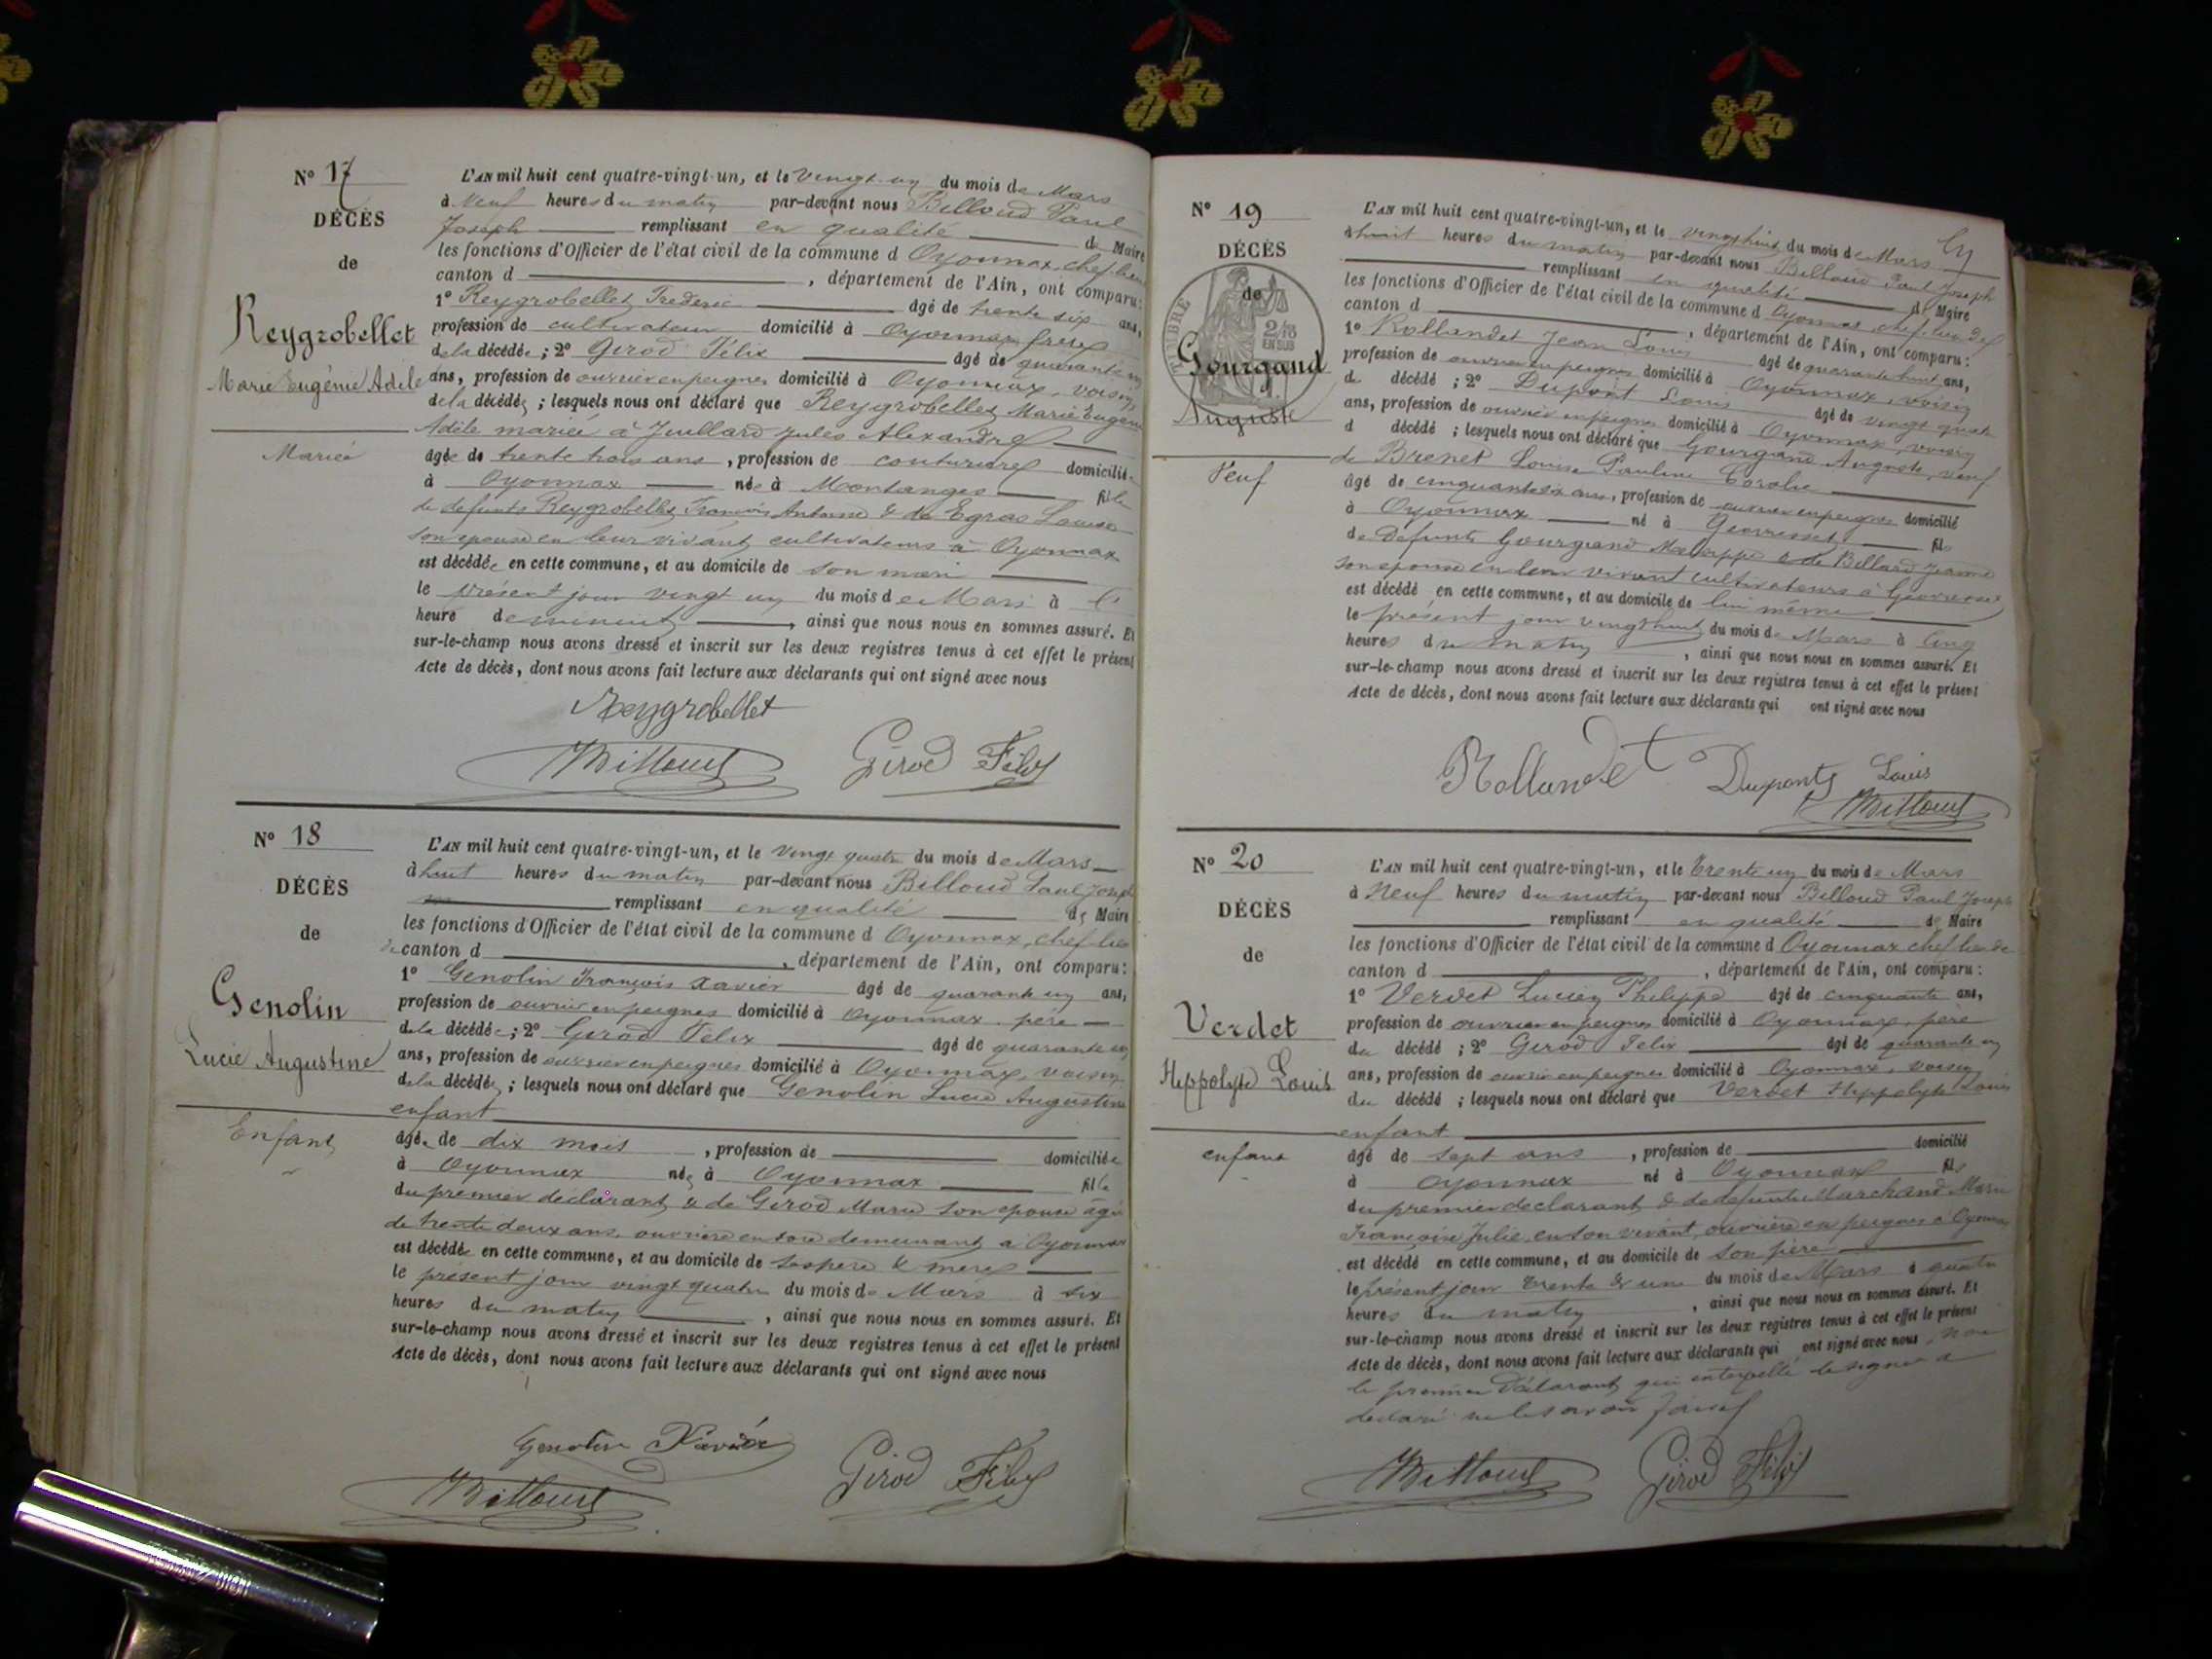 Nº 17
DÉCÈS
de
Reygrobellet
Marie Eugénie Adèle
Mariée
L'AN mil huit cent quatre-vingt-un, et le vingt un du mois de Mars
à Neuf heures du matin par-devant nous Billoud Paul
Joseph remplissant en qualité de Maire
les fonctions d'Officier de l'état civil de la commune d Oyonnax, chef-lieu
canton d , département de l'Ain, ont comparu:
1º Reygrobellet Frederic âgé de trente six ans,
profession de cultivateur domicilié à Oyonnax frère
de la décédée; 2º Girod Félix âgé de quarante un
ans, profession de ouvrier en peignes domicilié à Oyonnax, voisin
de la décédée; lesquels nous ont déclaré que Reygrobellet Marie Eugénie
Adèle mariée à Juillard Jules Alexandre
âgée de trente trois ans, profession de couturière domiciliée
à Oyonnax née à Montanges fille
de defunts Reygrobellet François Antoine & de Egras Louise
son epouse en leur vivant cultivateurs à Oyonnax
est décédée en cette commune, et au domicile de son mari
le présent jour vingt un du mois de Mars à
heure de minuit, ainsi que nous nous en sommes assuré. Et
sur-le-champ nous avons dressé et inscrit sur les deux registres tenus à cet effet le présent
Acte de décès, dont nous avons fait lecture aux déclarants qui ont signé avec nous
Reygrobellet
Billoud Girod Félix
Nº 18
DÉCÈS
de
Genolin
Lucie Augustine
Enfant
L'AN mil huit cent quatre-vingt-un, et le vingt quatre du mois de Mars
à huit heures du matin par-devant nous Billoud Paul Joseph
remplissant en qualité de Maire
les fonctions d'Officier de l'état civil de la commune d Oyonnax, chef-lieu
de canton d , département de l'Ain, ont comparu:
1º Genolin François Xavier âgé de quarante un ans,
profession de ouvrier en peignes domicilié à Oyonnax père
de la décédée; 2º Girod Félix âgé de quarante un
ans, profession de ouvrier en peignes domicilié à Oyonnax, voisin
de la décédée; lesquels nous ont déclaré que Genolin Lucie Augustine
enfant
âgée de dix mois, profession de domiciliée
à Oyonnax née à Oyonnax fille
du premier déclarant & de Girod Marie son epouse âgée
de trente deux ans, ouvrière en demeurant à Oyonnax
est décédée en cette commune, et au domicile de ses père & mère
le présent jour vingt quatre du mois de Mars à six
heures du matin, ainsi que nous nous en sommes assuré. Et
sur-le-champ nous avons dressé et inscrit sur les deux registres tenus à cet effet le présent
Acte de décès, dont nous avons fait lecture aux déclarants qui ont signé avec nous
Genolin Xavier
Billoud Girod Félix
Nº 19
DÉCÈS
de
TIMBRE
2/10
EN SUS
Gourgand
Auguste
Veuf
L'AN mil huit cent quatre-vingt-un, et le vingt huit du mois de Mars
à huit heures du matin par-devant nous Billoud Paul Joseph
remplissant en qualité de Maire
les fonctions d'Officier de l'état civil de la commune d Oyonnax chef-lieu de
canton d , département de l'Ain, ont comparu:
1º Rollandet Jean Louis âgé de quarante huit ans,
profession de ouvrier en peignes domicilié à Oyonnax, voisin
d décédé; 2º Dupont Louis âgé de vingt quatre
ans, profession de ouvrier en peignes domicilié à Oyonnax, voisin
d décédé; lesquels nous ont déclaré que Gourgand Auguste, veuf
de Brenet Louise Pauline Coralie
âgé de cinquante six ans, profession de ouvrier en peignes domicilié
à Oyonnax né à Géovresset fils
de Defunts Gourgand & de Billard Jeanne
son épouse en leur vivant cultivateurs à Géovresset
est décédé en cette commune, et au domicile de lui même
le présent jour vingt huit du mois de Mars à cinq
heures du matin, ainsi que nous nous en sommes assuré. Et
sur-le-champ nous avons dressé et inscrit sur les deux registres tenus à cet effet le présent
Acte de décès, dont nous avons fait lecture aux déclarants qui ont signé avec nous
Rollandet Duponts Louis
Billoud
Nº 20
DÉCÈS
de
Verdet
Hippolyte Louis
enfant
L'AN mil huit cent quatre-vingt-un, et le Trente un du mois de Mars
à Neuf heures du matin par-devant nous Billoud Paul Joseph
remplissant en qualité de Maire
les fonctions d'Officier de l'état civil de la commune d Oyonnax chef lieu de
canton d , département de l'Ain, ont comparu:
1º Verdet Lucien Philippe âgé de cinquante ans,
profession de ouvrier en peignes domicilié à Oyonnax, père
du décédé; 2º Girod Félix âgé de quarante un
ans, profession de ouvrier en peignes domicilié à Oyonnax, voisin
du décédé; lesquels nous ont déclaré que Verdet Hippolyte Louis
enfant
âgé de sept ans, profession de domicilié
à Oyonnax né à Oyonnax fils
du premier declarant & de defunte Marchand Marie
Françoise Julie, en son vivant, ouvrière en peignes à Oyonnax
est décédé en cette commune, et au domicile de son père
le présent jour trente & un du mois de Mars à quatre
heures du matin, ainsi que nous nous en sommes assuré. Et
sur-le-champ nous avons dressé et inscrit sur les deux registres tenus à cet effet le présent
Acte de décès, dont nous avons fait lecture aux déclarants qui ont signé avec nous, non
le premier Déclarant qui interpellé de signer a
declaré ne le savoir faire
Billoud Girod Félix